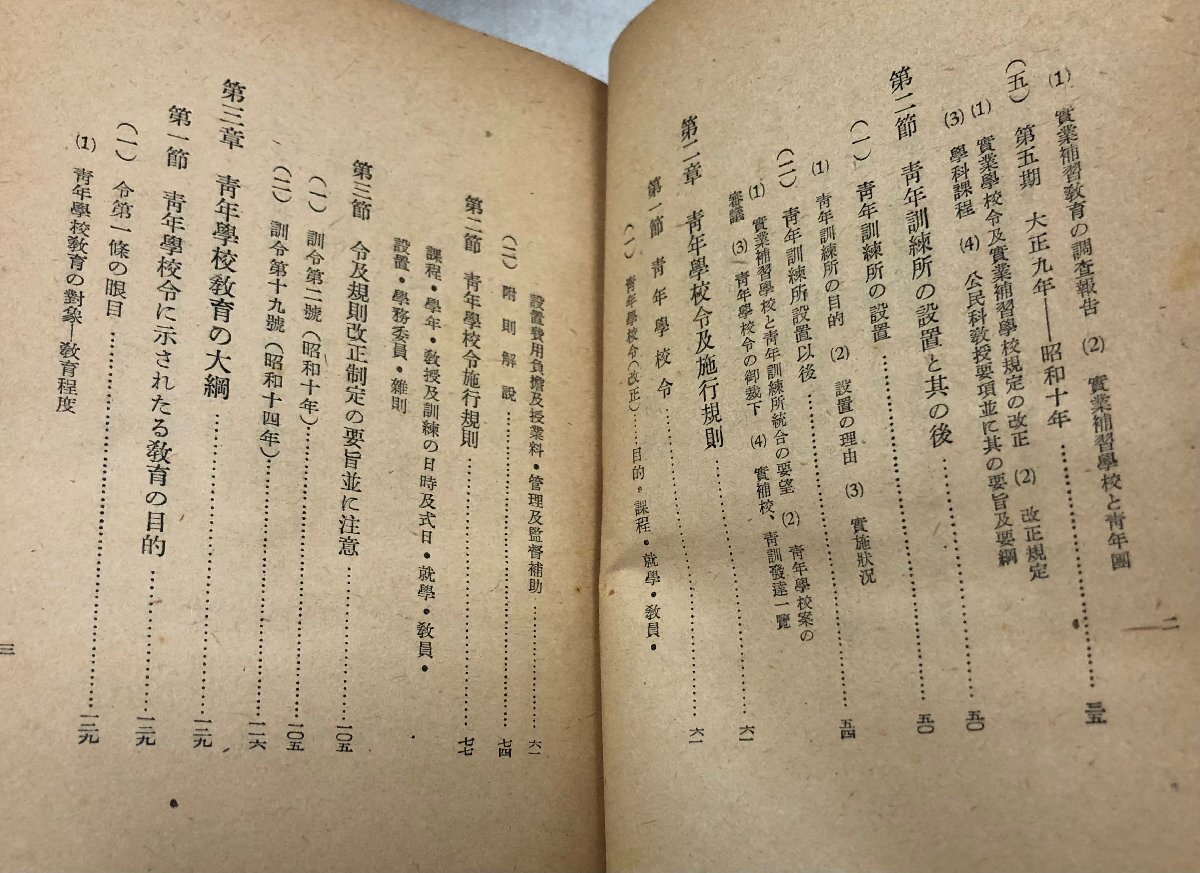 (1) 實業補習教育の調査報告 (2) 實業補習學校と靑年團
(五) 第五期 大正九年――昭和十年……三五
(1) 實業學校令及實業補習學校規定の改正 (2) 改正規定
(3) 學科課程 (4) 公民科教授要項並に其の要旨及要綱
第二節 靑年訓練所の設置と其の後……五〇
(一) 靑年訓練所の設置……五〇
(1) 靑年訓練所の目的 (2) 設置の理由 (3) 實施狀況
(二) 靑年訓練所設置以後……五四
(1) 實業補習學校と靑年訓練所統合の要望 (2) 靑年學校案の
審議 (3) 靑年學校令の御裁下 (4) 實補校、靑訓發達一覽
第二章 靑年學校令及施行規則……六一
第一節 靑年學校令……六一
(一) 靑年學校令(改正)……目的・課程・就學・敎員・
二
設置費用負擔及授業料・管理及監督補助……六一
(二) 附則解說……七四
第二節 靑年學校令施行規則……七七
課程・學年・敎授及訓練の日時及式日・就學・敎員・
設置・學務委員・雜則
第三節 令及規則改正制定の要旨並に注意……一〇五
(一) 訓令第二號(昭和十年)……一〇五
(二) 訓令第十九號(昭和十四年)……一一六
第三章 靑年學校敎育の大綱……一二九
第一節 靑年學校令に示されたる敎育の目的……一二九
(一) 令第一條の眼目……一二九
(1) 靑年學校敎育の對象―敎育程度
三